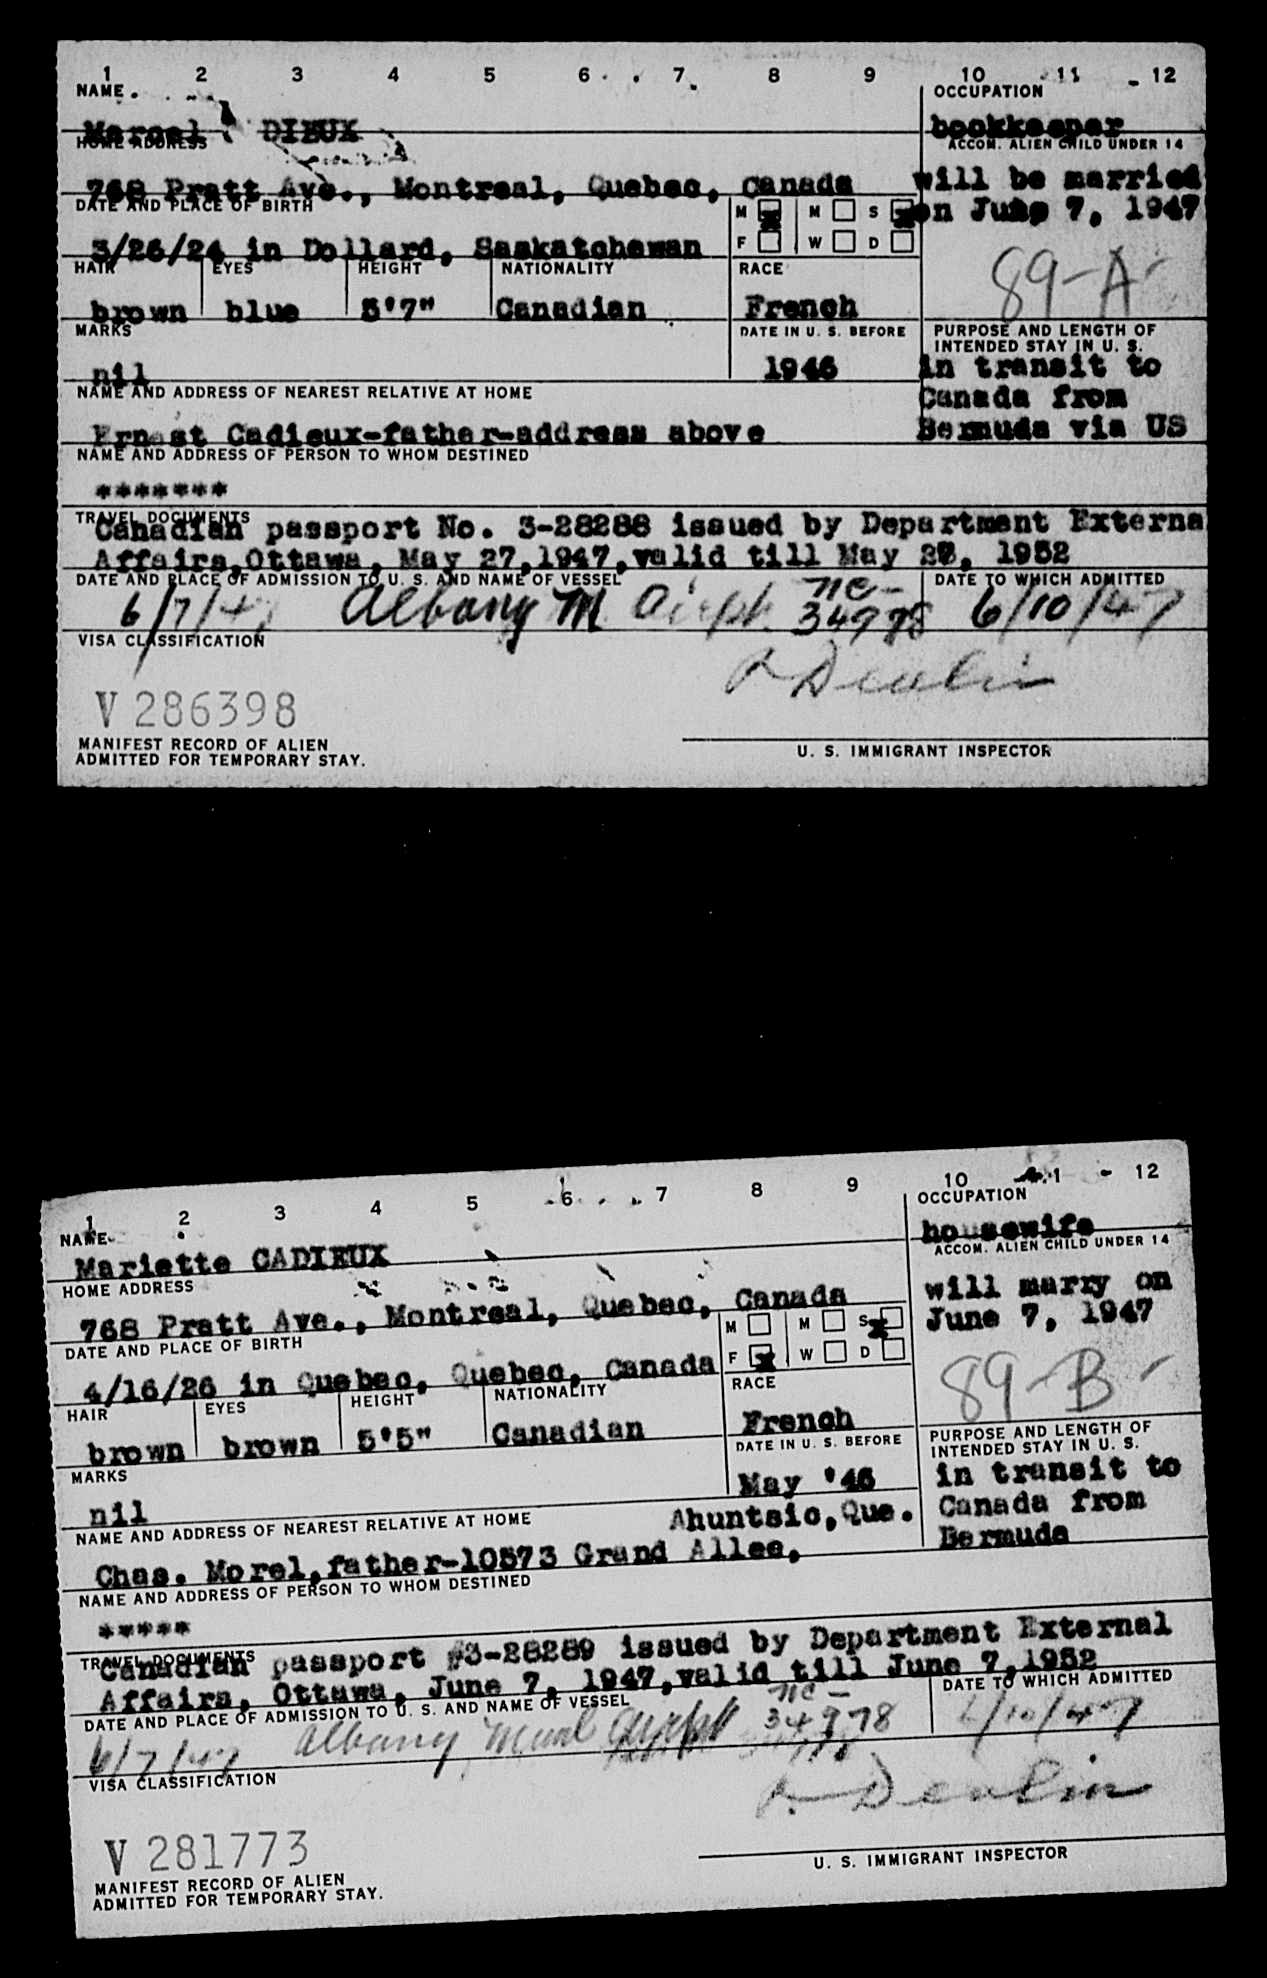 1 2 3 4 5 6 7 8 9 10 11 12
NAME OCCUPATION
Marcel DIEUX bookkeeper
HOME ADDRESS ACCOM. ALIEN CHILD UNDER 14
768 Pratt Ave., Montreal, Quebec, Canada will be married
DATE AND PLACE OF BIRTH M M S on June 7, 1947
3/26/24 in Dollard, Saskatchewan F W D
HAIR EYES HEIGHT NATIONALITY RACE 89-A
brown blue 5'7" Canadian French
MARKS DATE IN U. S. BEFORE PURPOSE AND LENGTH OF
INTENDED STAY IN U. S.
nil 1946 in transit to
NAME AND ADDRESS OF NEAREST RELATIVE AT HOME Canada from
Ernest Cadieux-father-address above Bermuda via US
NAME AND ADDRESS OF PERSON TO WHOM DESTINED
*******
TRAVEL DOCUMENTS
Canadian passport No. 3-28288 issued by Department Externa
Affairs,Ottawa, May 27,1947,valid till May 27, 1952
DATE AND PLACE OF ADMISSION TO U. S. AND NAME OF VESSEL DATE TO WHICH ADMITTED
6/7/47 Albany M Airpt NC-34978 6/10/47
VISA CLASSIFICATION
Devlin
V 286398
MANIFEST RECORD OF ALIEN
ADMITTED FOR TEMPORARY STAY.
U. S. IMMIGRANT INSPECTOR
1 2 3 4 5 6 7 8 9 10 11 12
NAME OCCUPATION
Mariette CADIEUX housewife
HOME ADDRESS ACCOM. ALIEN CHILD UNDER 14
768 Pratt Ave., Montreal, Quebec, Canada will marry on
DATE AND PLACE OF BIRTH M M S June 7, 1947
4/16/26 in Quebec, Quebec, Canada F W D
HAIR EYES HEIGHT NATIONALITY RACE 89-B
brown brown 5'5" Canadian French
MARKS DATE IN U. S. BEFORE PURPOSE AND LENGTH OF
INTENDED STAY IN U. S.
nil May '46 in transit to
NAME AND ADDRESS OF NEAREST RELATIVE AT HOME Ahuntsic,Que. Canada from
Chas. Morel,father-10573 Grand Allee, Bermuda
NAME AND ADDRESS OF PERSON TO WHOM DESTINED
*****
TRAVEL DOCUMENTS
Canadian passport #3-28289 issued by Department External
Affairs, Ottawa, June 7, 1947,valid till June 7,1952
DATE AND PLACE OF ADMISSION TO U. S. AND NAME OF VESSEL DATE TO WHICH ADMITTED
6/7/47 Albany Airpt NC-34978 6/10/47
VISA CLASSIFICATION
Devlin
V 281773
MANIFEST RECORD OF ALIEN
ADMITTED FOR TEMPORARY STAY.
U. S. IMMIGRANT INSPECTOR